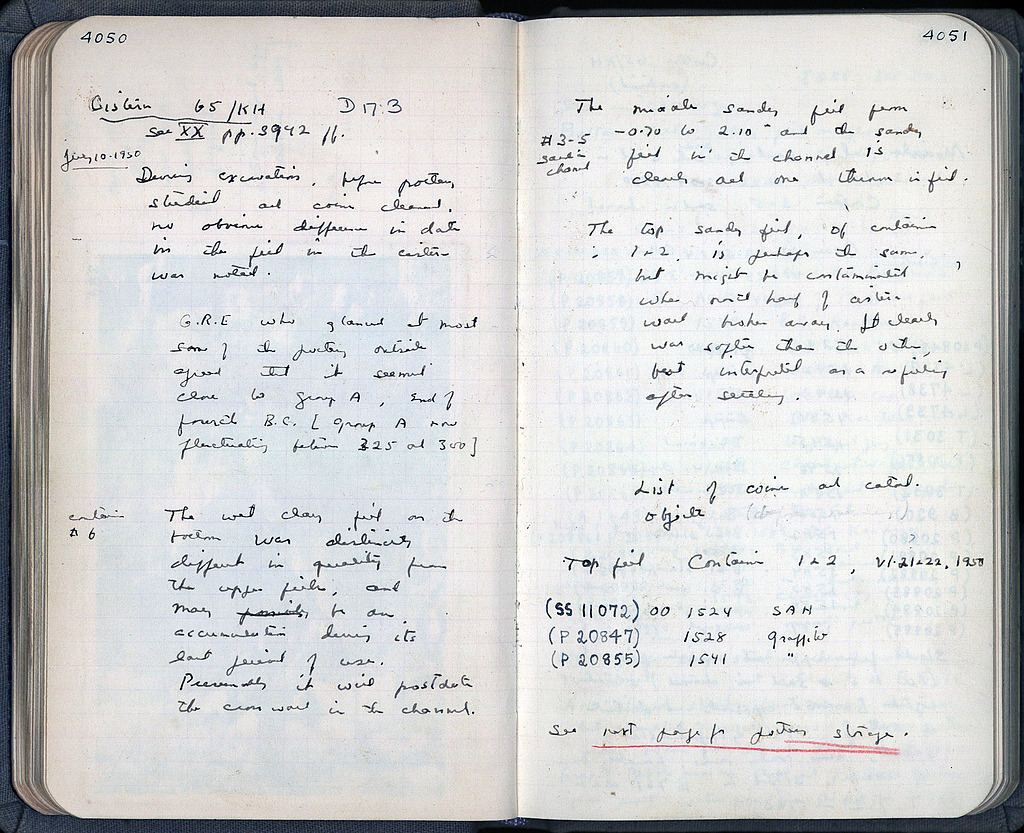 4050
Cistern 65/KH D 17:3
see XX pp. 3942 ff.
July 10-1950
During excavation, before pottery
studied and coins cleaned,
no obvious difference in date
in the fill in the cistern
was noted.
G.R.E who glanced at most
some of the pottery outside
agreed that it seemed
close to Group A, End of
fourth B.C. [Group A now
fluctuating between 325 and 300]
contain
# 6
The wet clay fill on the
bottom was distinctly
different in quality from
the upper fills, and
may possibly be an
accumulation during its
last period of use.
Presumably it will postdate
the cross wall in the channel.
4051
The middle sandy fill from
-0.70 to 2.10 and the sandy
# 3-5
fill in the channel is
channel
clearly all one thrown in fill.
The top sandy fill, of contain
1+2, is perhaps the same,
but might be contaminated
when north half of cistern
wall broken away. It clearly
was softer than the other,
best interpreted as a refilling
after settling.
List of coins and catal.
objects
Top fill Contain 1+2, VI.21+22, 1950
(SS 11072) OO 1524 SAH
(P 20847) 1528 graffito
(P 20855) 1541 "
See next page for pottery storage.